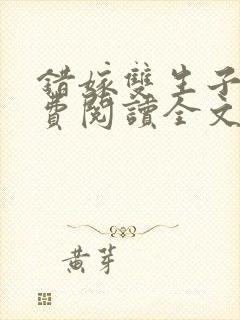 錯嫁雙生子
費閱讀全文
黃芽